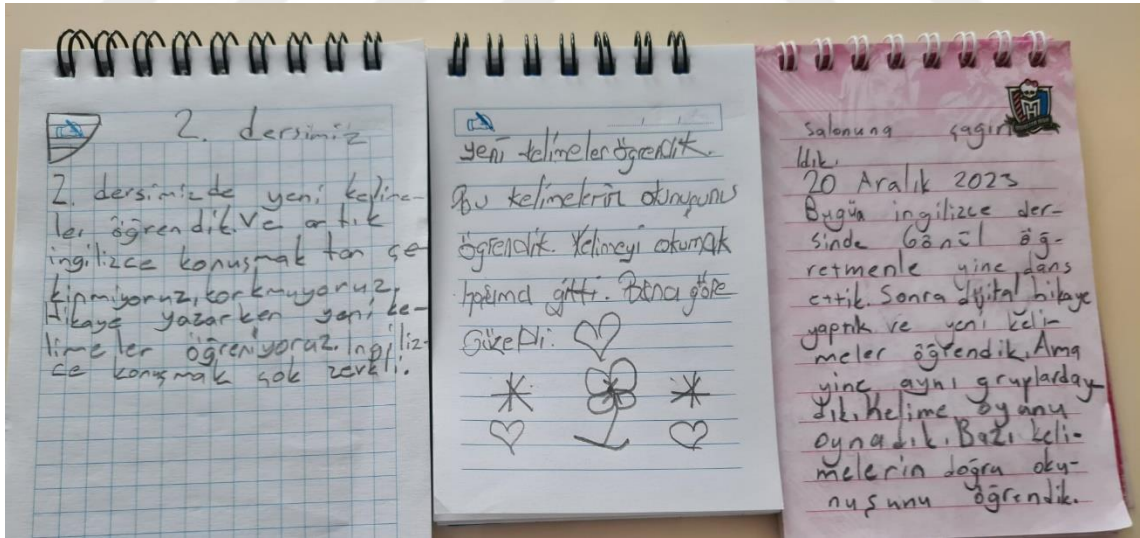 2. dersimiz
2. dersimizde yeni kelime-
ler öğrendik. Ve artık
ingilizce konuşmak tan çe-
kinmiyoruz, korkmuyoruz.
Hikaye yazarken yeni ke-
limeler öğreniyoruz. İngiliz-
ce konuşmak çok zevkli.
yeni kelimeler öğrendik.
Bu kelimelerin okunuşunu
öğrendik. Kelimeyi okumak
hoşuma gitti. Bana göre
Güzeldi.
salonuna çağırı
ldık.
20 Aralık 2023
Bugün ingilizce der-
sinde Gönül öğ-
retmenle yine dans
ettik. Sonra dijital hikaye
yaptık ve yeni keli-
meler öğrendik. Ama
yine aynı gruplarday-
dık. Kelime oyunu
oynadık. Bazı keli-
melerin doğru oku-
nuşunu öğrendik.